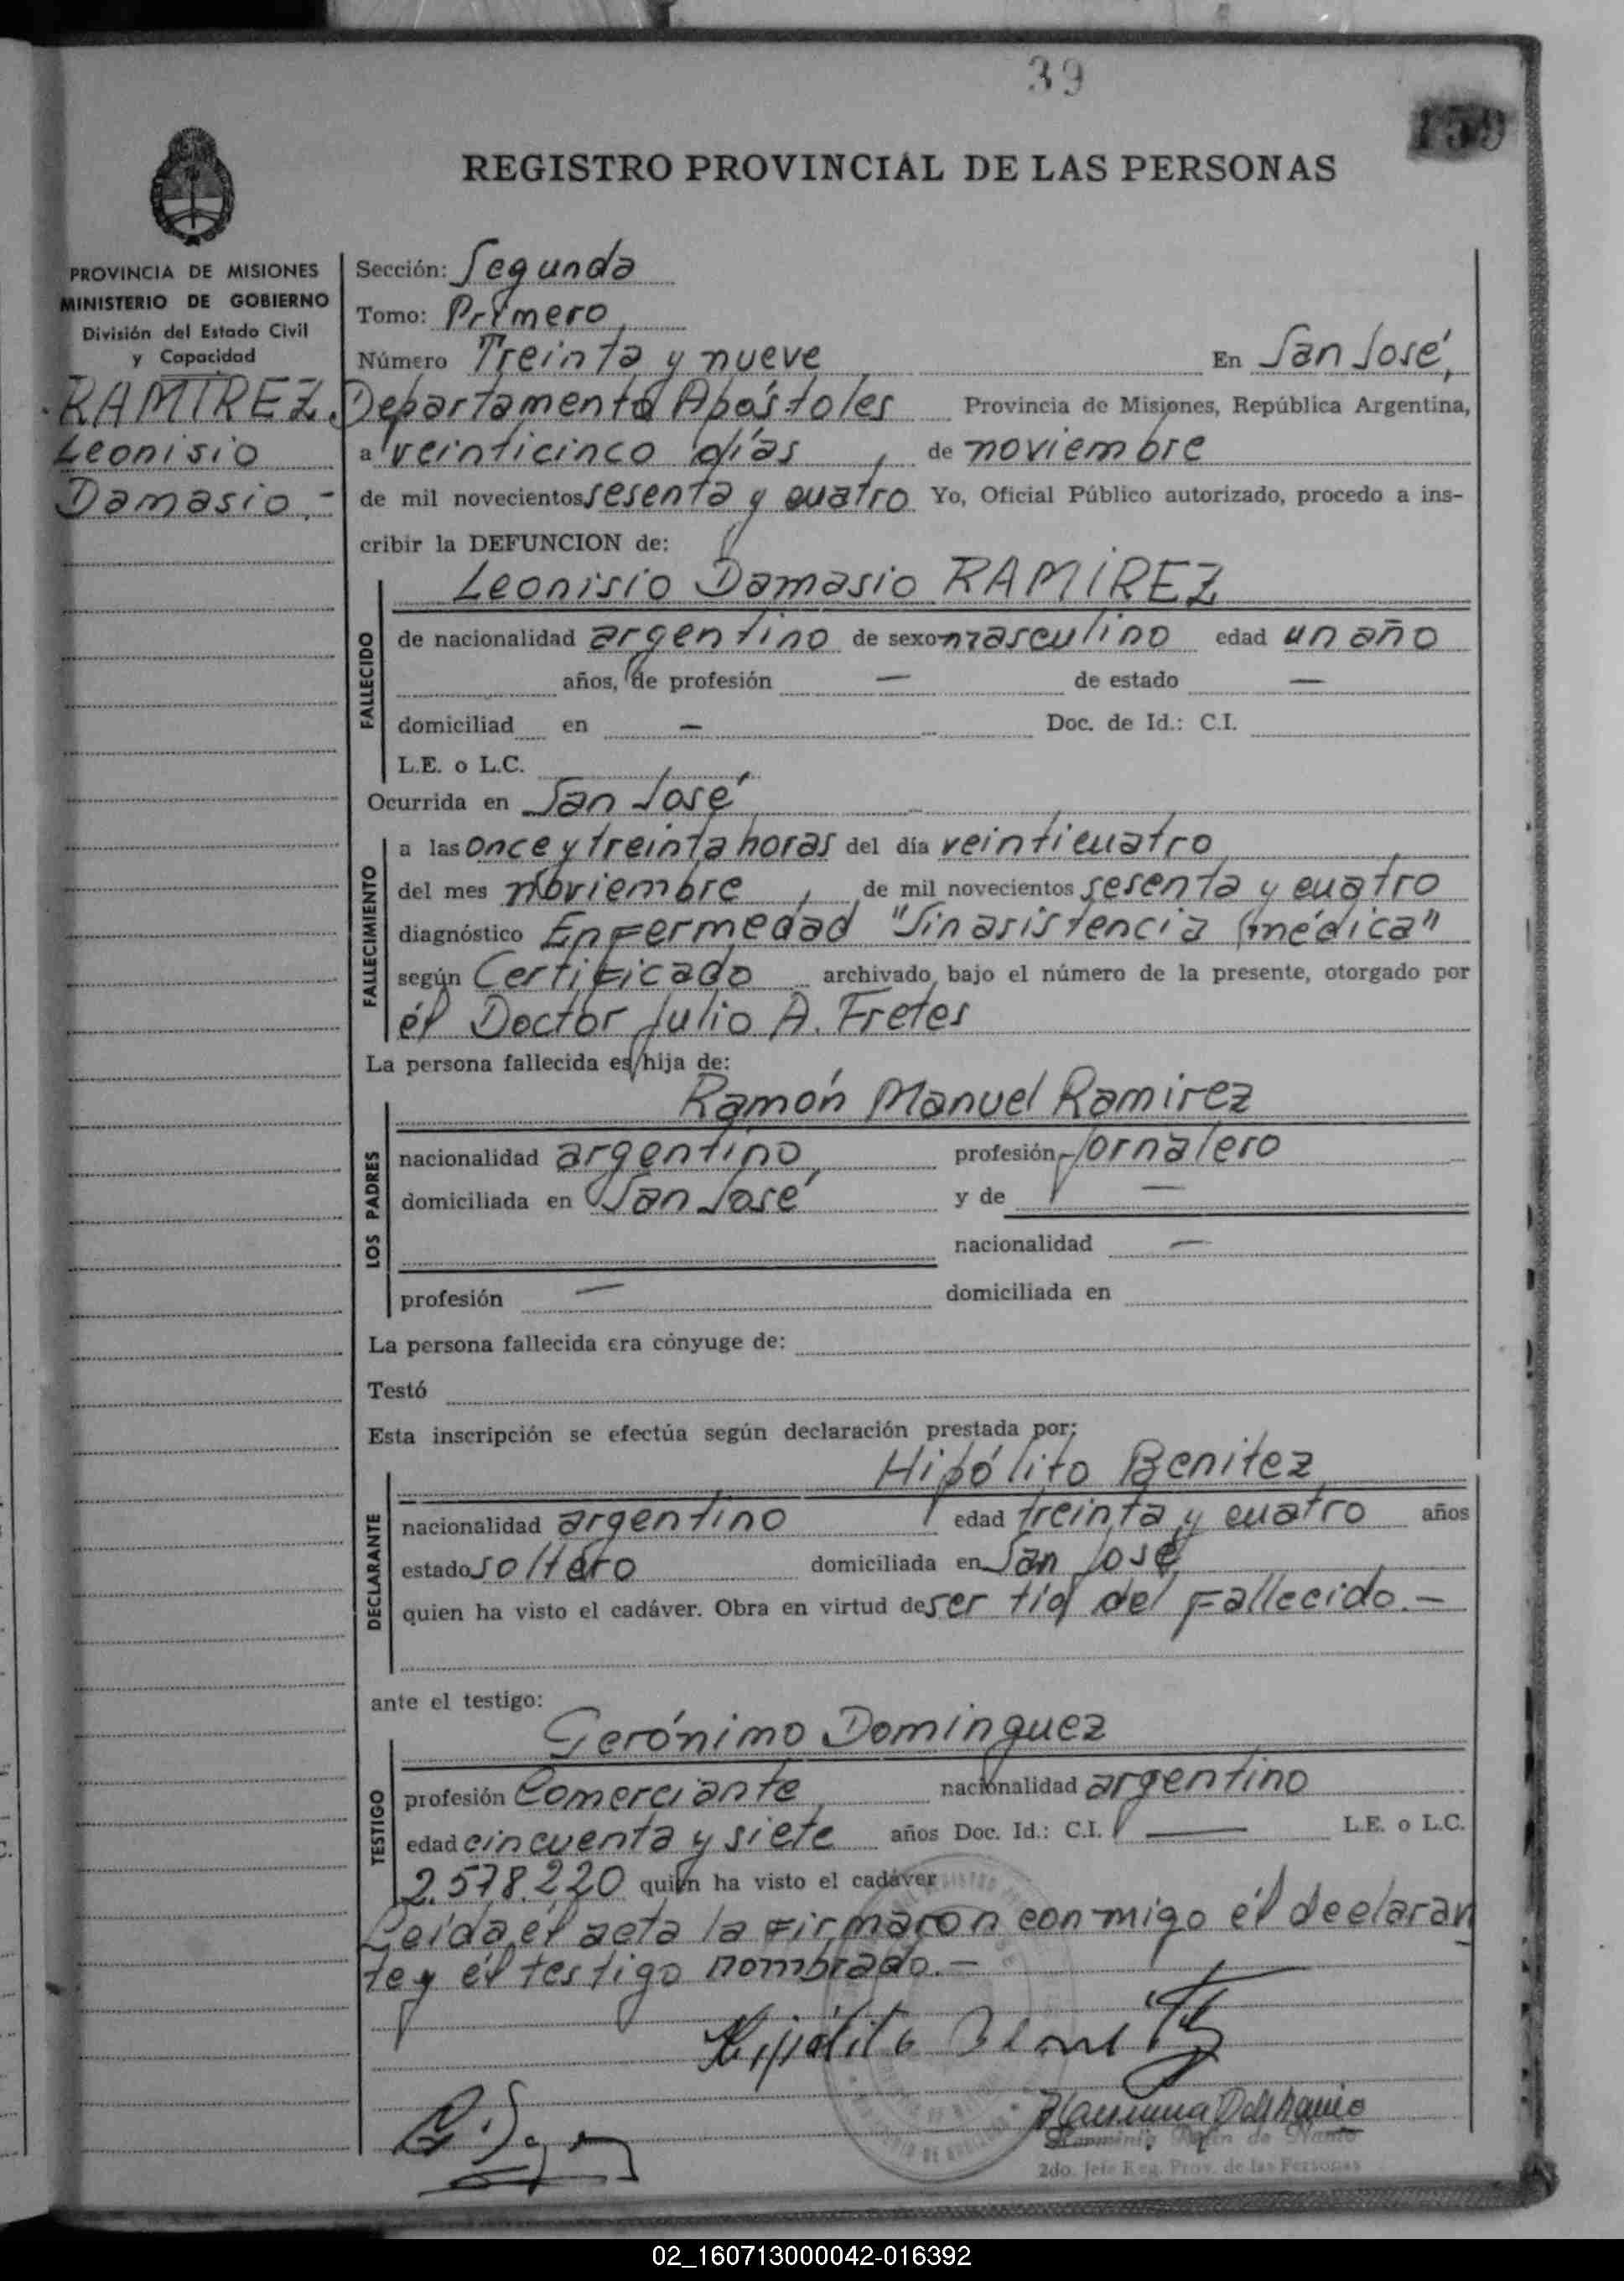 39
139
REGISTRO PROVINCIAL DE LAS PERSONAS
PROVINCIA DE MISIONES
MINISTERIO DE GOBIERNO
División del Estado Civil
y Capacidad
RAMIREZ,
Leonisio
Damasio.-
Sección: Segunda
Tomo: Primero
Número Treinta y nueve En San José,
Departamento Apóstoles Provincia de Misiones, República Argentina,
a veinticinco días de noviembre
de mil novecientos sesenta y cuatro Yo, Oficial Público autorizado, procedo a ins-
cribir la DEFUNCION de:
Leonisio Damasio RAMIREZ
FALLECIDO
de nacionalidad argentino de sexo masculino edad un año
años, de profesión — de estado —
domiciliad en — Doc. de Id.: C.I.
L.E. o L.C.
Ocurrida en San José
FALLECIMIENTO
a las once y treinta horas del día veinticuatro
del mes noviembre, de mil novecientos sesenta y cuatro
diagnóstico Enfermedad "Sin asistencia médica"
según Certificado archivado bajo el número de la presente, otorgado por
él Doctor Julio A. Fretes
La persona fallecida es/hija de:
Ramón Manuel Ramirez
LOS PADRES
nacionalidad argentino, profesión Jornalero
domiciliada en San José y de —
nacionalidad —
profesión — domiciliada en
La persona fallecida era cónyuge de:
Testó
Esta inscripción se efectúa según declaración prestada por:
Hipólito Benitez
DECLARANTE
nacionalidad argentino edad treinta y cuatro años
estado soltero domiciliada en San José,
quien ha visto el cadáver. Obra en virtud de ser tío del fallecido.-
ante el testigo:
Gerónimo Dominguez
TESTIGO
profesión Comerciante, nacionalidad argentino
edad cincuenta y siete años Doc. Id.: C.I. — L.E. o L.C.
2.578.220 quien ha visto el cadáver
Leída él acta la firmaron conmigo él declaran
te y él testigo nombrado.-
Hipólito Benitez
2do. Jefe Reg. Prov. de las Personas
02_160713000042-016392